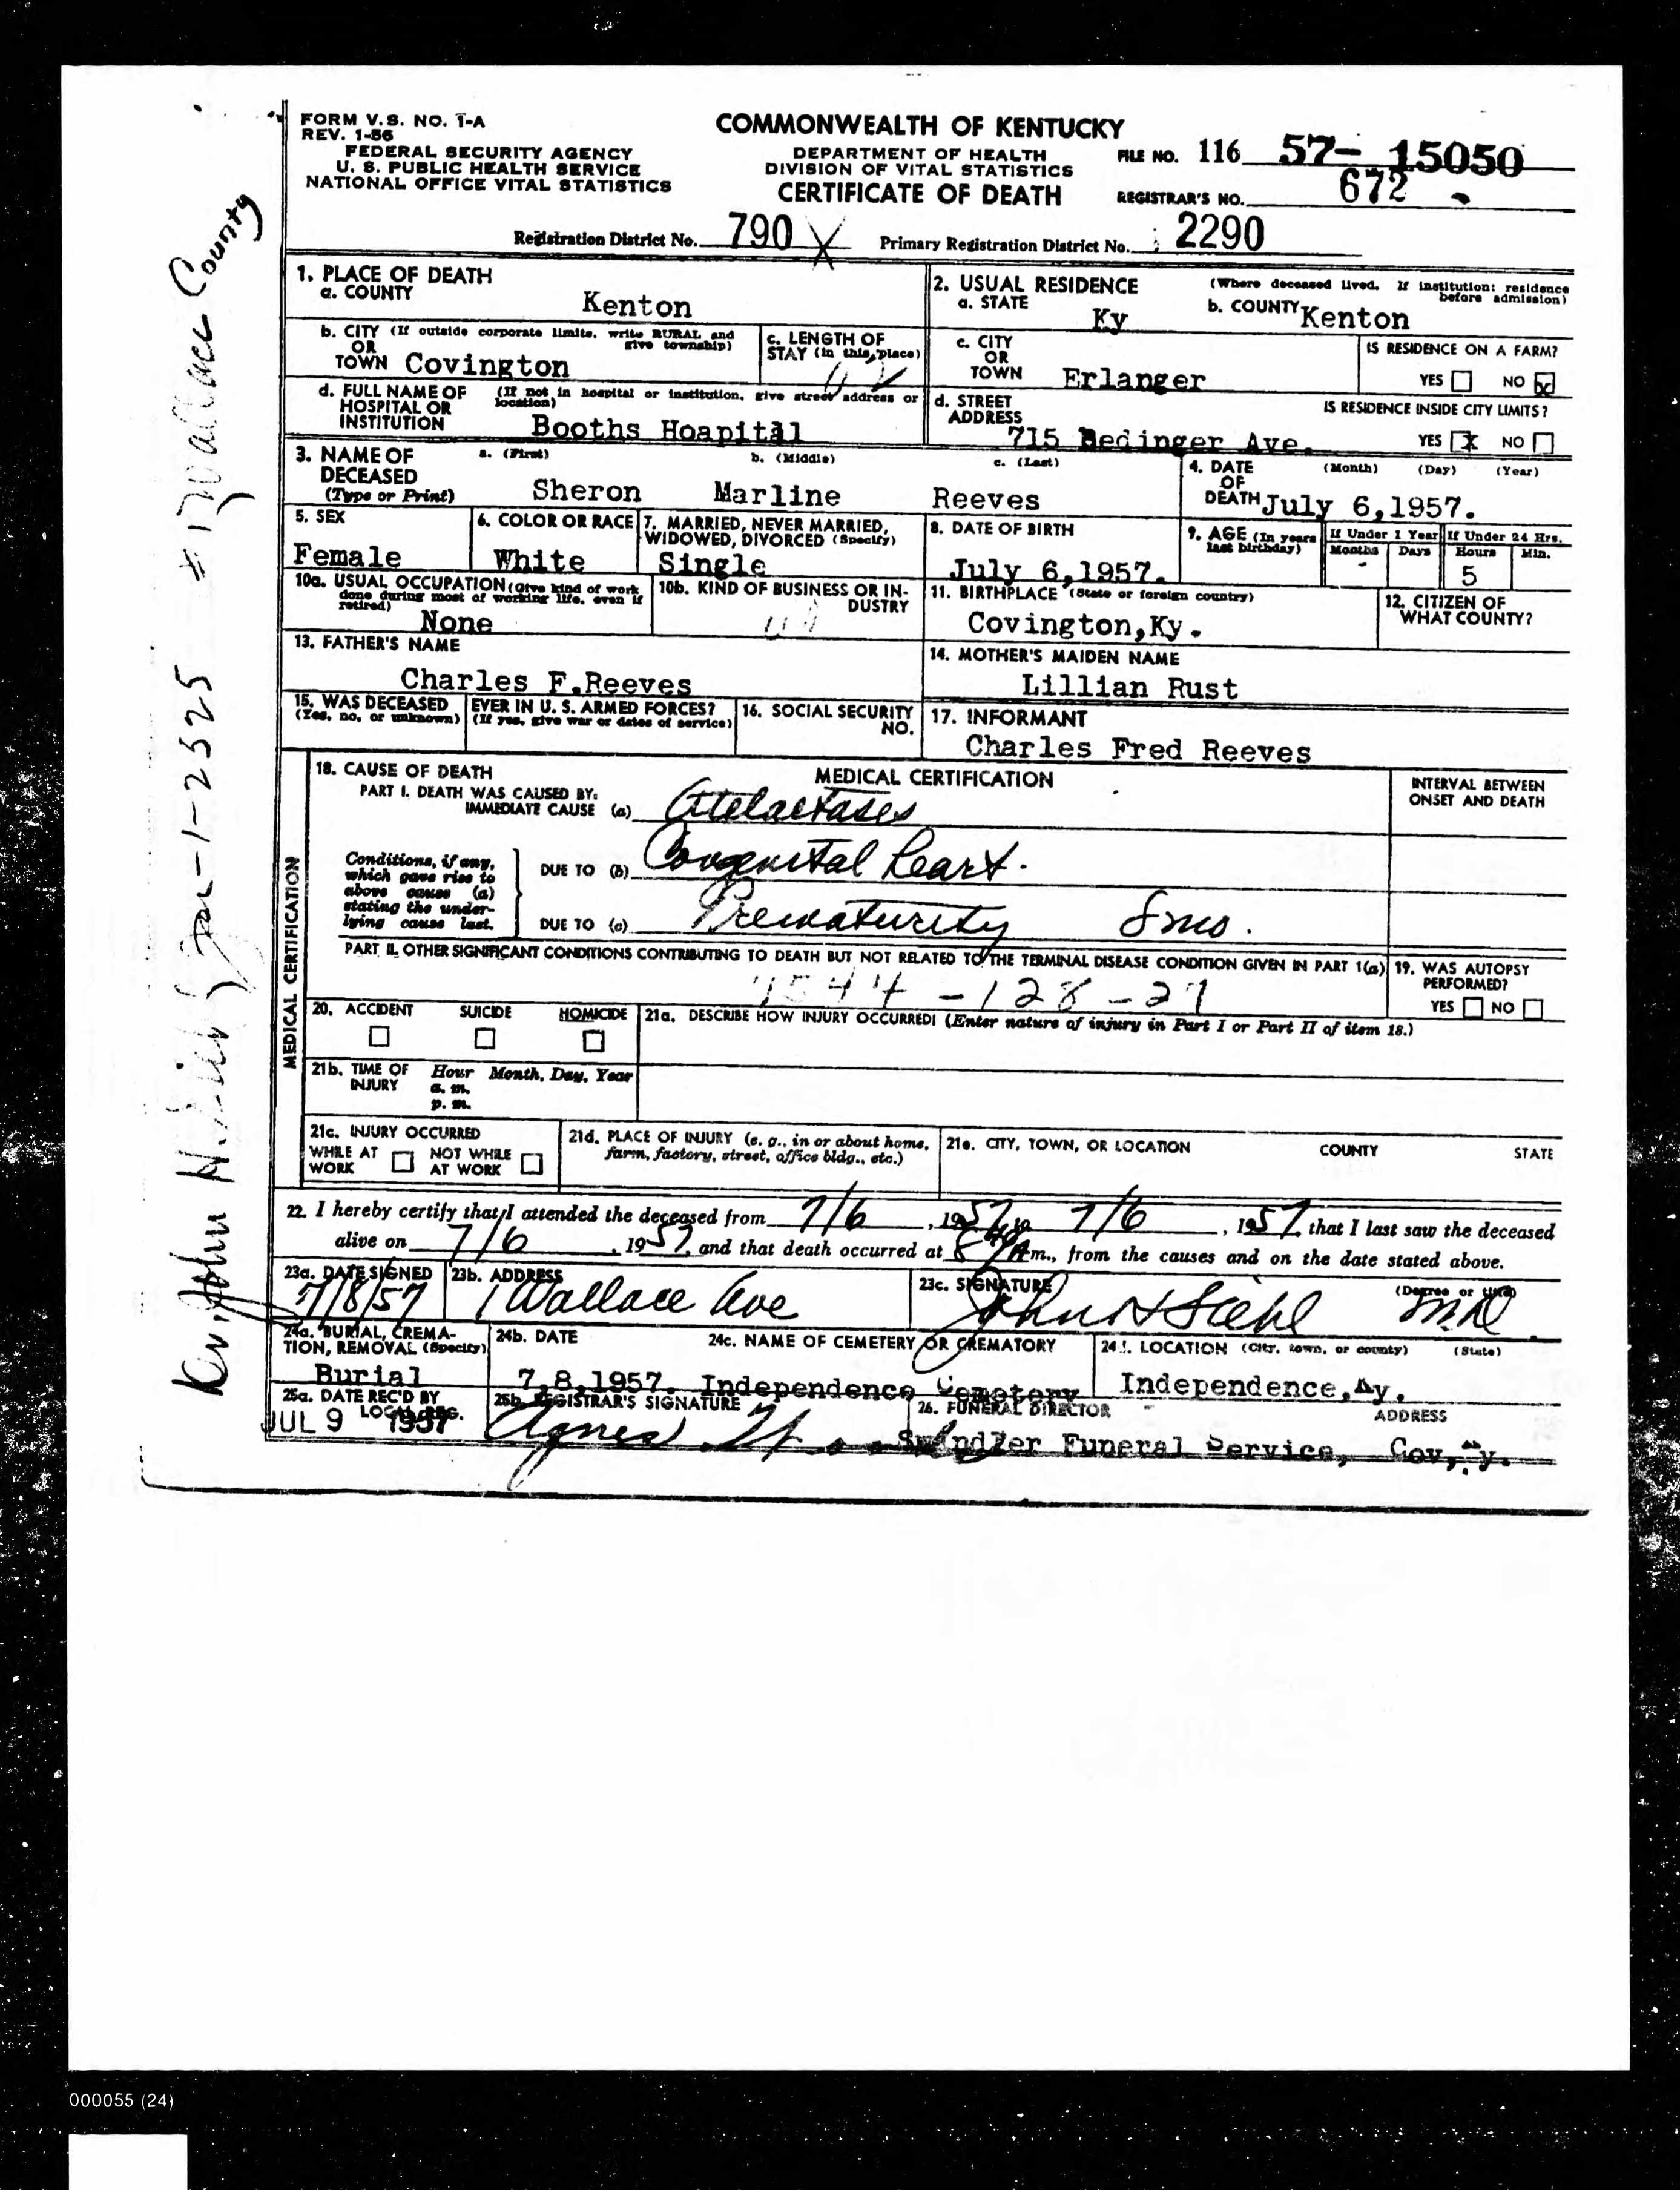 FORM V.S. NO. 1-A
REV. 1-56
FEDERAL SECURITY AGENCY
U. S. PUBLIC HEALTH SERVICE
NATIONAL OFFICE VITAL STATISTICS
COMMONWEALTH OF KENTUCKY
DEPARTMENT OF HEALTH
DIVISION OF VITAL STATISTICS
CERTIFICATE OF DEATH
FILE NO. 116 57- 15050
REGISTRAR'S NO. 672
Registration District No. 790 X Primary Registration District No. 2290
1. PLACE OF DEATH
a. COUNTY
Kenton
2. USUAL RESIDENCE (Where deceased lived. If institution: residence before admission)
a. STATE Ky b. COUNTY Kenton
b. CITY (If outside corporate limits, write RURAL and give township)
OR
TOWN Covington
c. LENGTH OF
STAY (in this place)
c. CITY
OR
TOWN Erlanger
IS RESIDENCE ON A FARM?
YES NO x
d. FULL NAME OF (If not in hospital or institution, give street address or location)
HOSPITAL OR
INSTITUTION Booths Hoapital
d. STREET
ADDRESS
715 Bedinger Ave.
IS RESIDENCE INSIDE CITY LIMITS?
YES x NO
3. NAME OF
DECEASED
(Type or Print)
a. (First) b. (Middle) c. (Last)
Sheron Marline Reeves
4. DATE (Month) (Day) (Year)
OF
DEATH July 6,1957.
5. SEX
Female
6. COLOR OR RACE
White
7. MARRIED, NEVER MARRIED,
WIDOWED, DIVORCED (Specify)
Single
8. DATE OF BIRTH
July 6,1957.
9. AGE (In years last birthday)
If Under 1 Year If Under 24 Hrs.
Months Days Hours Min.
- 5
10a. USUAL OCCUPATION (Give kind of work done during most of working life, even if retired)
None
10b. KIND OF BUSINESS OR INDUSTRY
11. BIRTHPLACE (State or foreign country)
Covington,Ky.
12. CITIZEN OF
WHAT COUNTY?
13. FATHER'S NAME
Charles F.Reeves
14. MOTHER'S MAIDEN NAME
Lillian Rust
15. WAS DECEASED EVER IN U. S. ARMED FORCES?
(Yes, no, or unknown) (If yes, give war or dates of service)
16. SOCIAL SECURITY
NO.
17. INFORMANT
Charles Fred Reeves
MEDICAL CERTIFICATION
18. CAUSE OF DEATH
MEDICAL CERTIFICATION
INTERVAL BETWEEN
ONSET AND DEATH
PART I. DEATH WAS CAUSED BY:
IMMEDIATE CAUSE (a) Atelactases
Conditions, if any,
which gave rise to
above cause (a)
stating the under-
lying cause last.
DUE TO (b) Congenital heart.
DUE TO (c) Prematurity 8mo.
PART II. OTHER SIGNIFICANT CONDITIONS CONTRIBUTING TO DEATH BUT NOT RELATED TO THE TERMINAL DISEASE CONDITION GIVEN IN PART 1(a)
7544-128-27
19. WAS AUTOPSY
PERFORMED?
YES NO
20. ACCIDENT SUICIDE HOMICIDE
21a. DESCRIBE HOW INJURY OCCURRED! (Enter nature of injury in Part I or Part II of item 18.)
21b. TIME OF Hour Month, Day, Year
INJURY a. m.
p. m.
21c. INJURY OCCURRED
WHILE AT NOT WHILE
WORK AT WORK
21d. PLACE OF INJURY (e. g., in or about home,
farm, factory, street, office bldg., etc.)
21e. CITY, TOWN, OR LOCATION COUNTY STATE
22. I hereby certify that I attended the deceased from 7/6, 1957, to 7/6, 1957, that I last saw the deceased
alive on 7/6, 1957, and that death occurred at Am., from the causes and on the date stated above.
23a. DATE SIGNED
7/8/57
23b. ADDRESS
1 Wallace Ave
23c. SIGNATURE (Degree or title)
John H Siehl M.D.
24a. BURIAL, CREMA-
TION, REMOVAL (Specify)
Burial
24b. DATE
7.8.1957.
24c. NAME OF CEMETERY OR CREMATORY
Independence Cemetery
24d. LOCATION (City, town, or county) (State)
Independence,Ky.
25a. DATE REC'D BY
LOCAL REG.
JUL 9 1957
25b. REGISTRAR'S SIGNATURE
Agnes
26. FUNERAL DIRECTOR ADDRESS
Swindler Funeral Service, Cov,Ky.
John H. Siehl Jr-1-2325 #1 Wallace County
000055 (24)